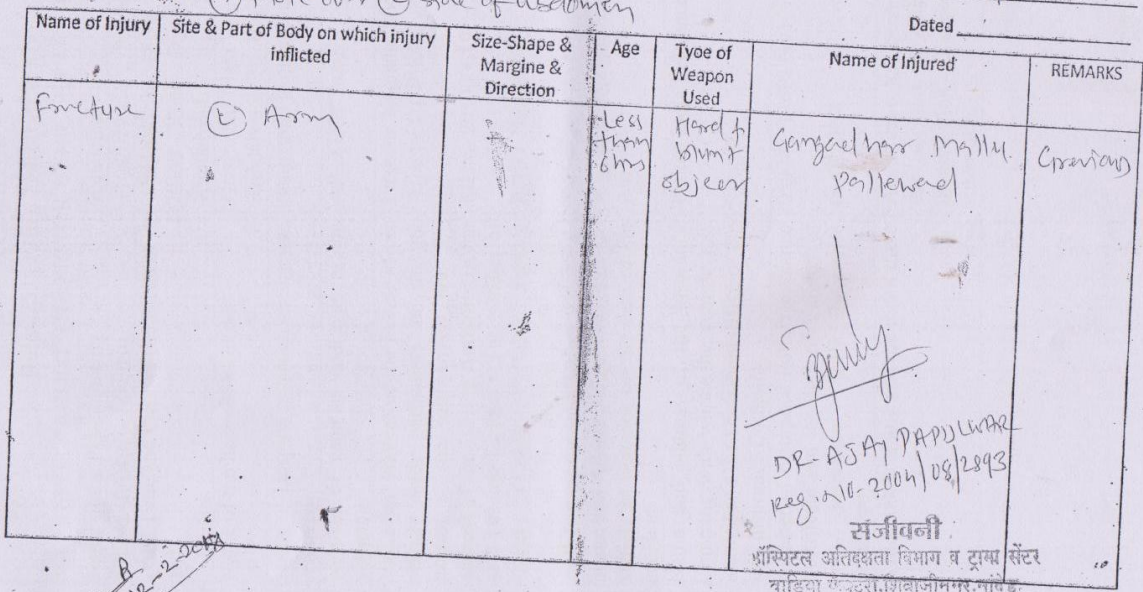 ① Mole over Ⓛ side of abdomen
Dated
Name of Injury
Site & Part of Body on which injury
inflicted
Size-Shape &
Margine &
Direction
Age
Tyoe of
Weapon
Used
Name of Injured
REMARKS
Fracture
Ⓛ Arm
Less
than
6 hrs
Hard &
blunt
object
Gangadhar Mallu
Pallewad
Grevious
DR-AJAY PAPULWAR
Reg. No- 2004/08/2893
संजीवनी
हॉस्पिटल अतिदक्षता विभाग व ट्रामा सेंटर
वाडिया फॅक्टरी, शिवाजीनगर, नांदेड.